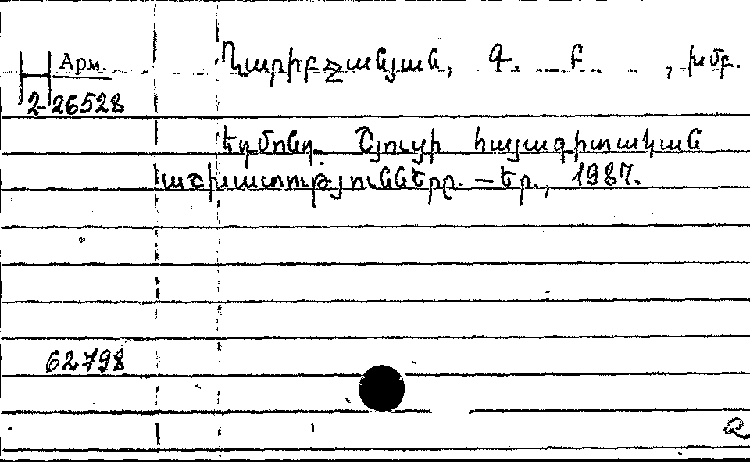 Арм.
2-26528
Ղարիբջանյան, Գ. Բ., խմբ.
Եդմոնդ Շյուցի հայագիտական
աշխատությունները. — Եր., 1987.
62798